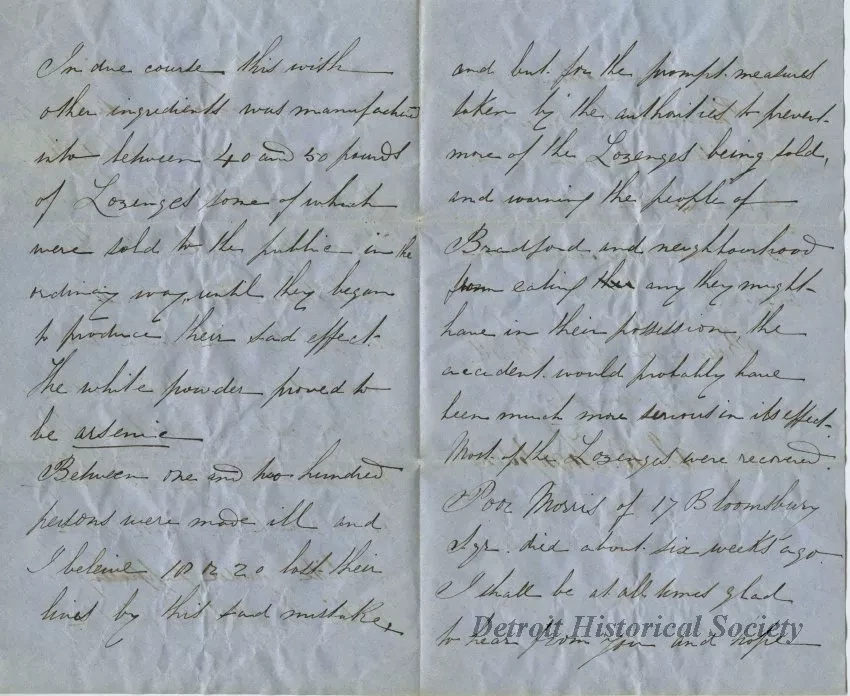 In due course this with
other ingredients was manufactured
into between 40 and 50 pounds
of Lozenges some of which
were sold to the public in the
ordinary way, until they began
to produce their sad effect.
The white powder proved to
be arsenic
Between one and two hundred
persons were made ill and
I beleive 18 or 20 lost their
lives by this sad mistake,
and but for the prompt measures
taken by the authorities to prevent
more of the Lozenges being sold,
and warning the people of
Bradford and neighbourhood
from eating any they might
have in their possession the
accident would probably have
been much more serious in its effect.
Most of the Lozenges were recovered.
Poor Morris of 17 Bloomsbury
Sqr. died about six weeks ago.
I shall be at all times glad
to hear from you and hope
Detroit Historical Society